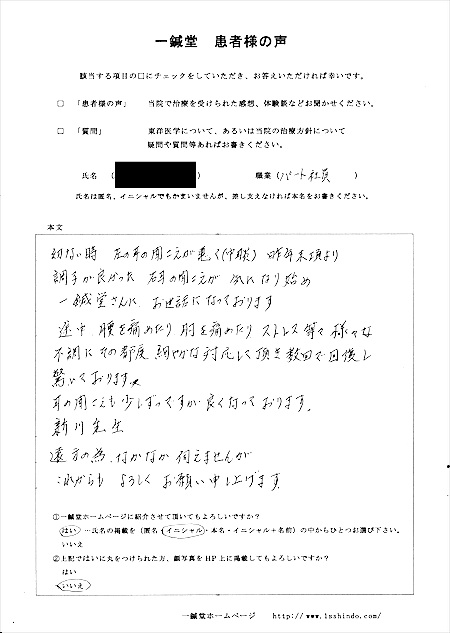 一鍼堂 患者様の声
該当する項目の□にチェックをしていただき、お答えいただければ幸いです。
□ 「患者様の声」 当院で治療を受けられた感想、体験談などお聞かせください。
□ 「質問」 東洋医学について、あるいは当院の治療方針について
疑問や質問等あればお書きください。
氏名 ( ) 職業 (パート社員 )
氏名は匿名、イニシャルでもかまいませんが、差し支えなければ本名をお書きください。
本文
幼ない時 左の耳の聞こえが悪く(中耳炎) 昨年末頃より
調子が良かった 右耳の聞こえが 気になり始め
一鍼堂さんに お世話になっております
途中 腰を痛めたり 肘を痛めたり ストレス等々 様々な
不調に その都度 細やかな対応して頂き数回で回復し
驚いております。
耳の聞こえも少しずつですが良くなっております。
新川先生
遠方の為 なかなか伺えませんが
これからも よろしく お願い申し上げます。
①一鍼堂ホームページに紹介させて頂いてもよろしいですか？
はい …氏名の掲載を (匿名・イニシャル・本名・イニシャル＋名前) の中からひとつお選び下さい。
いいえ
②上記ではいに丸をつけられた方、顔写真をHP上に掲載してもよろしいですか？
はい
いいえ
一鍼堂ホームページ http://www.isshindo.com/